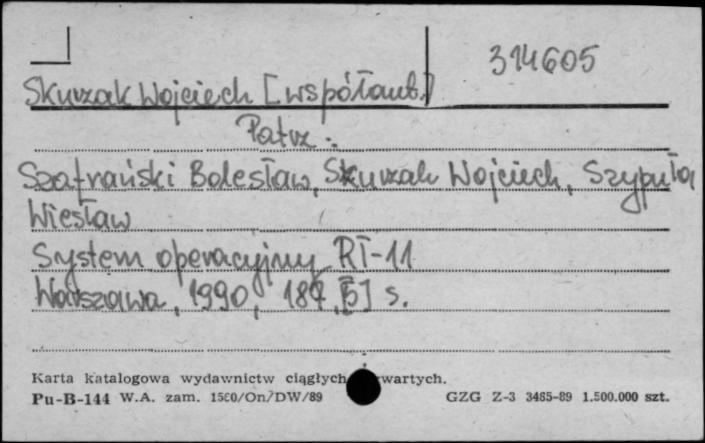 314605
Skurzak Wojciech [współaut.]
Patrz:
Szafrański Bolesław, Skurzak Wojciech, Szypuła
Wiesław
System operacyjny RT-11
Warszawa, 1990, 187, [5] s.
Karta katalogowa wydawnictw ciągłych wartych.
Pu-B-144 W.A. zam. 1580/On/DW/89 GZG Z-3 3485-89 1.500.000 szt.